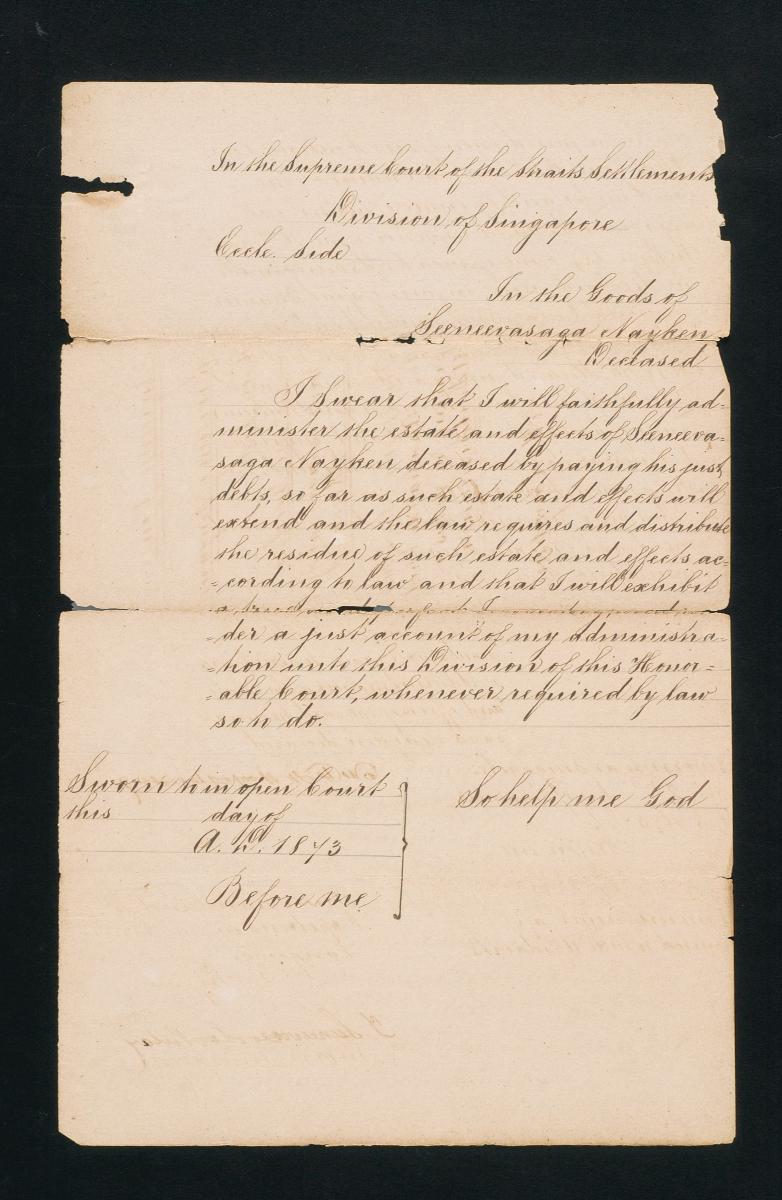 In the Supreme Court of the Straits Settlements
Division of Singapore
Eccle. Side
In the Goods of
Seeneevasaga Nayken
Deceased
I Swear that I will faithfully ad-
minister the estate and effects of Seeneeva=
saga Nayken deceased by paying his just
debts, so far as such estate and effects will
extend and the law requires and distribute
the residue of such estate and effects ac=
=cording to law and that I will exhibit
a
=der a just account of my administra=
=tion unto this Division of this Honor=
=able Court, whenever required by law
so to do.
Sworn to in open Court
this day of
A. D. 1873
Before me
So help me God